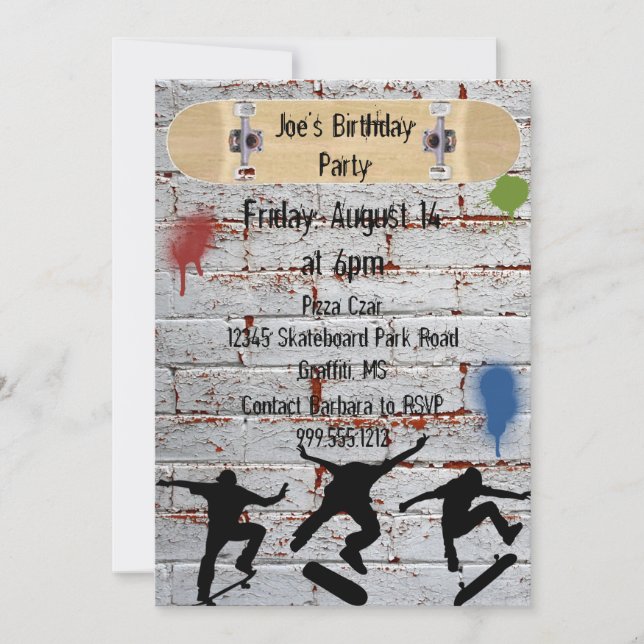 Joe's Birthday
Party
Friday, August 14
at 6pm
Pizza Czar
12345 Skateboard Park Road
Graffiti, MS
Contact Barbara to RSVP
999.555.1212